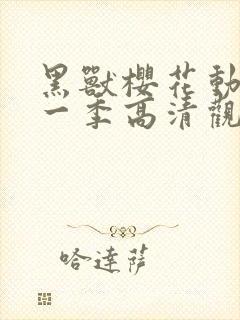 黑獸櫻花動
一季高清觀
哈達薩